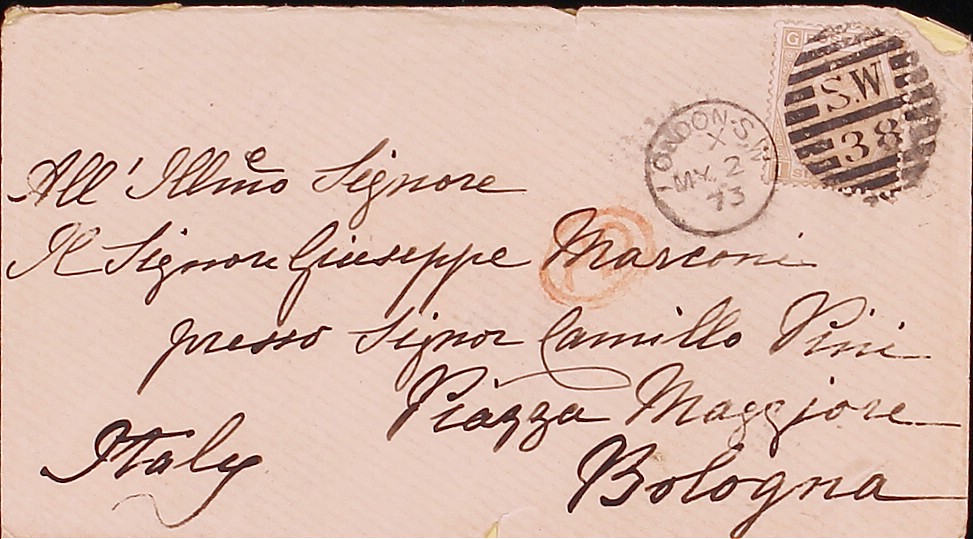 All' Illmo Signore
Il Signore Giuseppe Marconi
presso Signor Camillo Pini
Piazza Maggiore
Bologna
Italy
LONDON·S.W
X
MY 2
73
S.W
38